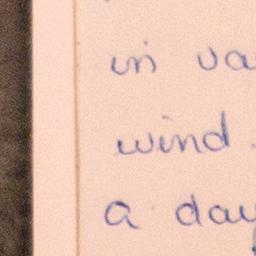 in va
wind.
a day